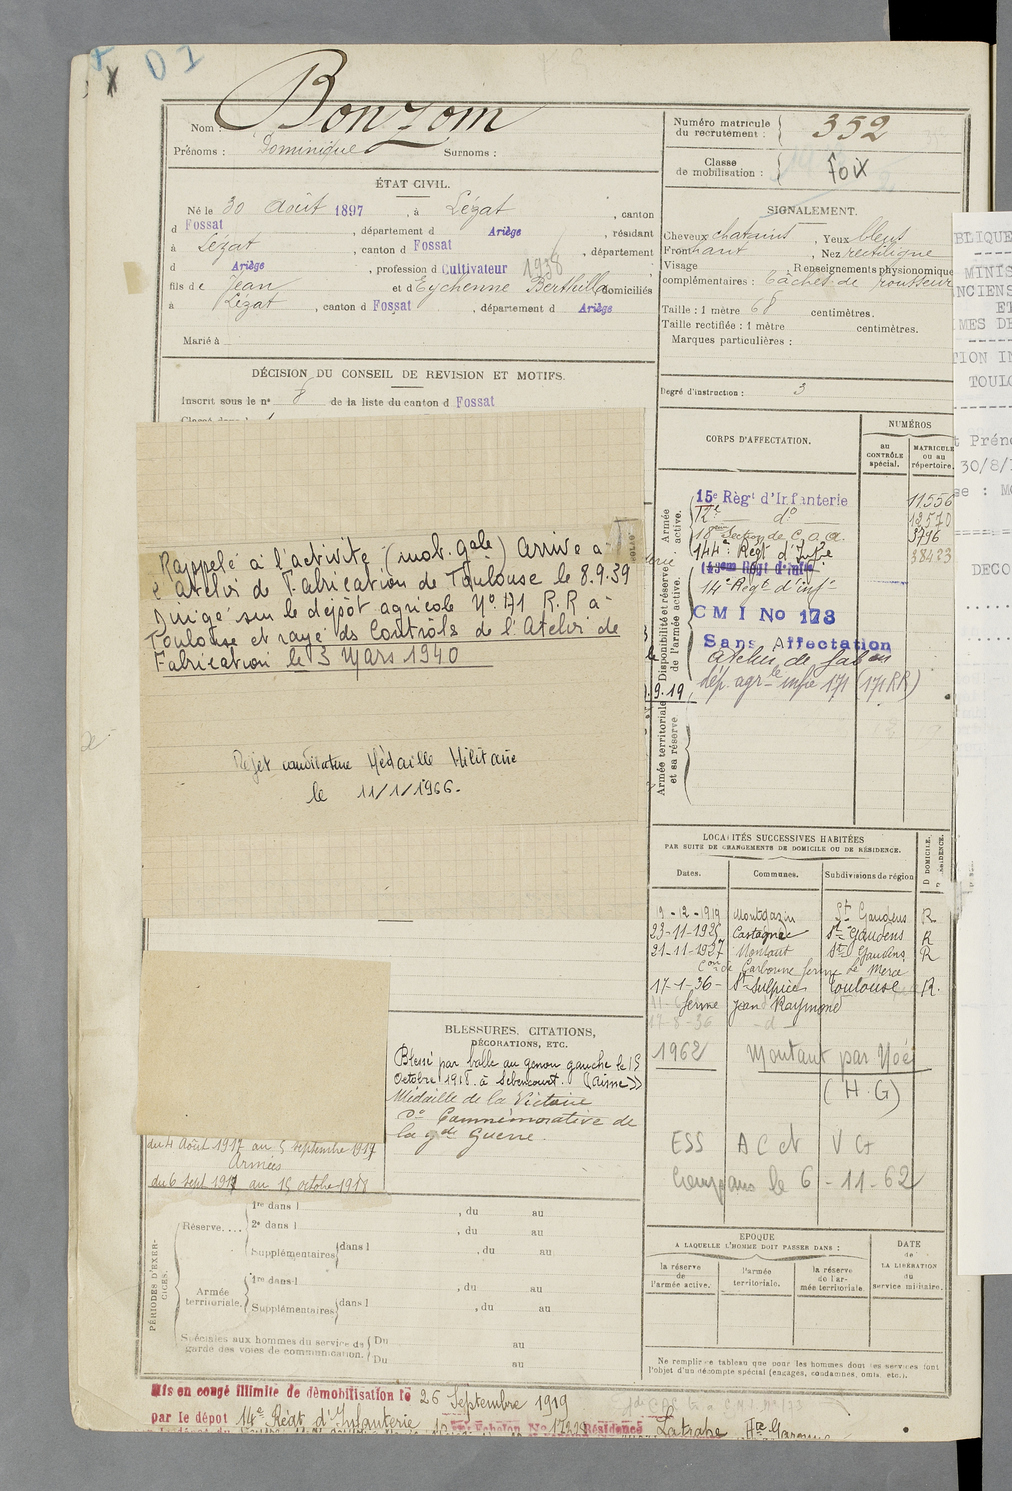 D I
Bonzom
Nom :
Prénoms : Dominique Surnoms :
Numéro matricule du recrutement : 352
Classe de mobilisation : Foix
ÉTAT CIVIL.
Né le 30 Août 1897, à Lézat, canton
d Fossat, département d Ariège, résidant
à Lézat, canton d Fossat, département
d Ariège, profession d Cultivateur 1938
fils de Jean et d Eychenne Berthille domiciliés
à Lézat, canton d Fossat, département d Ariège
Marié à
SIGNALEMENT.
Cheveux chatains, Yeux bleus
Front haut, Nez rectiligne
Visage , Renseignements physionomiques
complémentaires : Tâches de rousseur
Taille : 1 mètre 68 centimètres.
Taille rectifiée : 1 mètre centimètres.
Marques particulières :
DÉCISION DU CONSEIL DE REVISION ET MOTIFS.
Inscrit sous le n° 8 de la liste du canton d Fossat
Degré d'instruction : 3
Rappelé à l'activité (mob. gale) Arrivé à
l'Atelier de Fabrication de Toulouse le 8.9.39
Dirigé sur le dépôt agricole N° 171 R.R à
Toulouse et rayé ds Contrôls de l'Atelier de
Fabrication le 3 Mars 1940
Rejet candidature Médaille Militaire
le 11/1/1966.
CORPS D'AFFECTATION.
NUMÉROS
au CONTRÔLE spécial.
MATRICULE ou au répertoire.
Armée active.
15e Régt d'Infanterie 11556
do 12570
18me Section de C.O.A. 3796
144e Régt d'Infie 38423
Disponibilité et réserve de l'armée active.
14e Régt d'inf-
CMI No 173
Sans Affectation
Atelier de fabon
9.19
dép. agr-le infie 171 (171 RR)
Armée territoriale et sa réserve.
LOCALITÉS SUCCESSIVES HABITÉES
PAR SUITE DE CHANGEMENTS DE DOMICILE OU DE RÉSIDENCE.
Dates. Communes. Subdivisions de région D DOMICILE.
19-12-1919 Montgazin St Gaudens R
23-11-1925 Castagnac St Gaudens R
21-11-1927 Montaut St Gaudens R
Con de Carbonne ferme La Merce
17-1-36- St Sulpice Toulouse R.
ferme Jean Raymond
17-8-36 -d-
1962 Montaut par Noé
(H.G)
ESS A C N V G
le 6-11-62
BLESSURES, CITATIONS,
DÉCORATIONS, ETC.
Blessé par balle au genou gauche le 15
Octobre 1918 à Seboncourt. (Aisne)
Médaille de la Victoire
do Commémorative de
la gde Guerre.
du 4 Août 1917 au 5 septembre 1917
Armées
du 6 sept 1917 au 15 octobre 1918
PÉRIODES D'EXERCICES.
Réserve....
1re dans l , du au
2e dans l , du au
Supplémentaires dans l , du au
Armée territoriale.
1re dans l , du au
Supplémentaires dans l , du au
Spéciales aux hommes du service de garde des voies de communication. Du au
Du au
EPOQUE
A LAQUELLE L'HOMME DOIT PASSER DANS :
la réserve de l'armée active.
l'armée territoriale.
la réserve de l'armée territoriale.
DATE de LA LIBÉRATION du service militaire.
Ne remplir ce tableau que pour les hommes dont les services font
l'objet d'un décompte spécial (engagés, condamnés, omis, etc.).
Mis en congé illimité de démobilisation le 26 Septembre 1919
par le dépôt 14e Régt d'Infanterie Echelon No 17229 Résidence Latrape Hte Garonne
BLIQUE
MINIS
NCIENS
ET
MES DE
TION IN
TOULO
t Préno
30/8/1
se : Mo
DECO